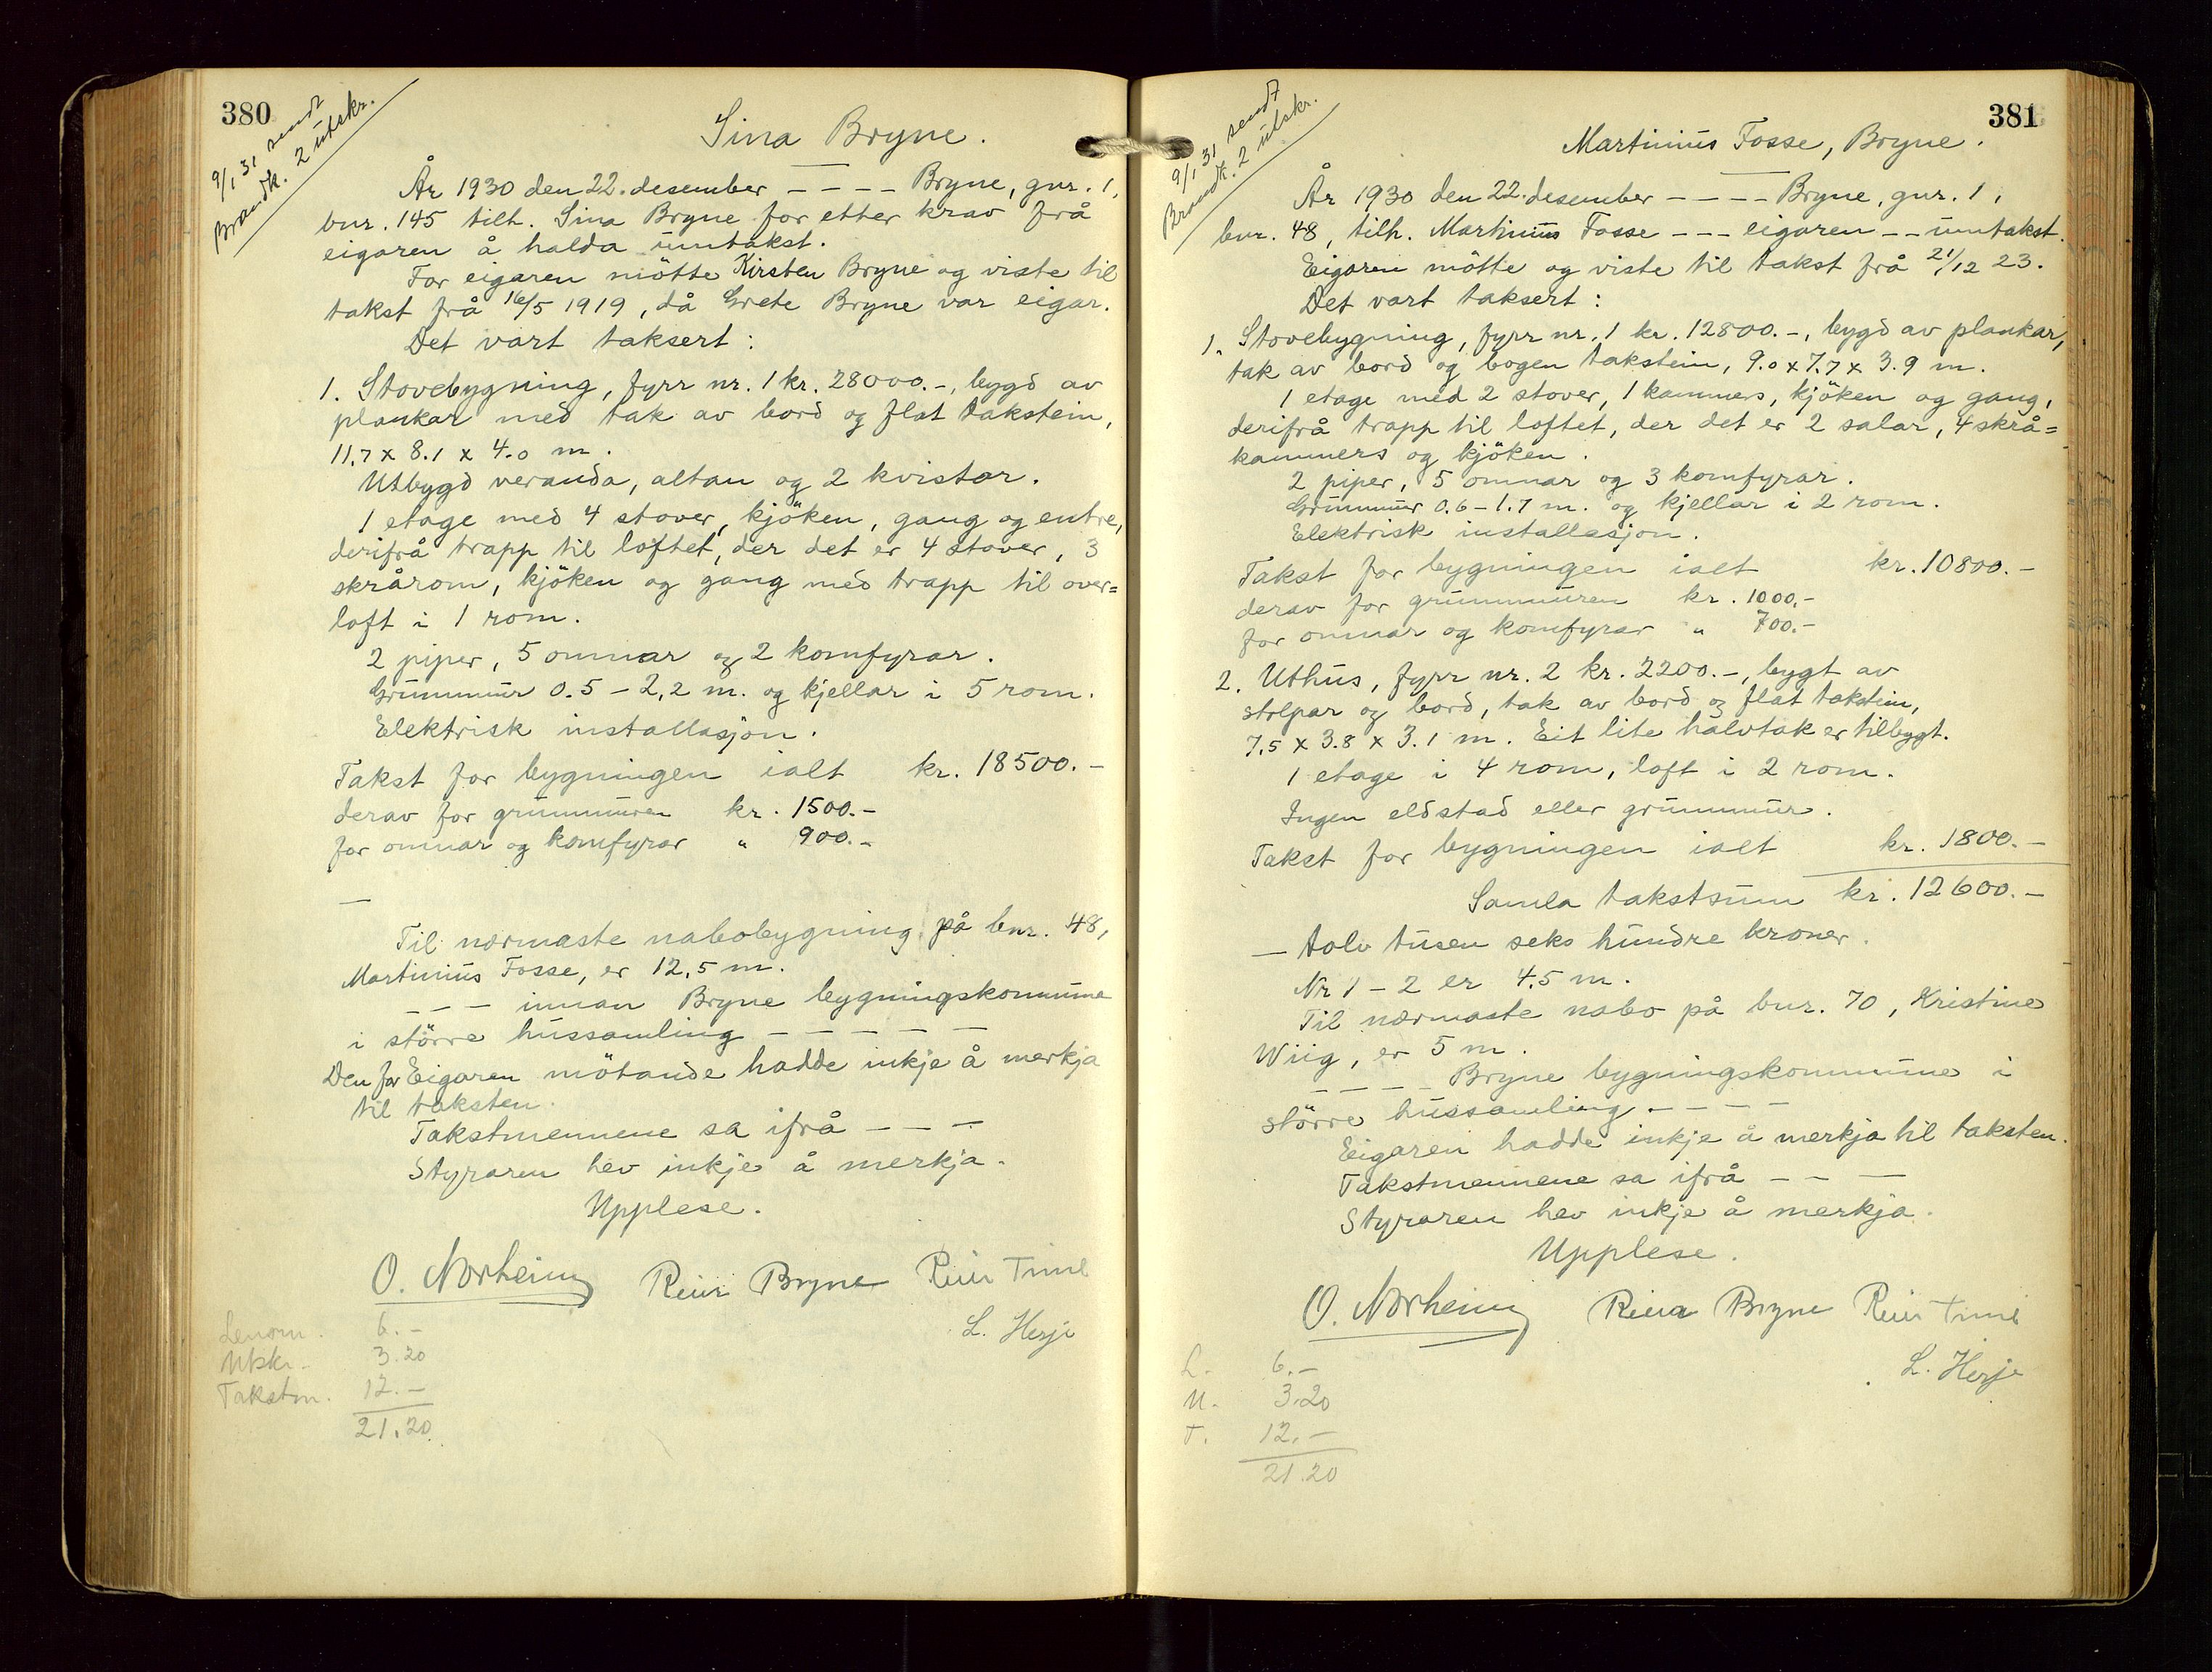 380
9/1 31 sendt
Brandk. 2 utskr.
Sina Bryne.
År 1930 den 22. desember - - - - Bryne, gnr. 1,
bnr. 145 tilh. Sina Bryne for etter krav frå
eigaren å halda umtakst.
For eigaren mötte Kirsten Bryne og viste til
takst frå 16/5 1919, då Grete Bryne var eigar.
Det vart taksert:
1. Stovebygning, fyrr nr. 1 kr. 28000.-, bygd av
plankar med tak av bord og flat takstein,
11.7 x 8.1 x 4.0 m.
Utbygd veranda, altan og 2 kvistar.
1 etage med 4 stover, kjöken, gang og entre,
derifrå trapp til loftet, der det er 4 stover, 3
skrårom, kjöken og gang med trapp til over=
loft i 1 rom.
2 piper, 5 omnar og 2 komfyrar.
Grunnmur 0.5 - 2,2 m. og kjellar i 5 rom.
Elektrisk installasjon.
Takst for bygningen ialt kr. 18500.-
derav for grunnmuren kr. 1500.-
for omnar og komfyrar " 900.-
—
Til nærmaste nabobygning på bnr. 48,
Martinius Fosse, er 12,5 m.
- - - innan Bryne bygningskommune
i större hussamling - - - - -
Den for Eigaren mötande hadde inkje å merkja
til taksten.
Takstmennene sa ifrå - - -
Styraren hev inkje å merkja.
Upplese.
O. Norheim Reier Bryne Reier Time
L. Herje
Lensm. 6.-
Utskr. 3.20
Takstm. 12.-
21.20
381
9/1 31 sendt
Brandk. 2 utskr.
Martinius Fosse, Bryne.
År 1930 den 22. desember - - - - Bryne, gnr. 1,
bnr. 48, tilh. Martinius Fosse - - - eigaren - - umtakst.
Eigaren mötte og viste til takst frå 21/12 23.
Det vart taksert:
1. Stovebygning, fyrr nr. 1 kr. 12800.-, bygd av plankar,
tak av bord og bogen takstein, 9.0 x 7.7 x 3.9 m.
1 etage med 2 stover, 1 kammers, kjöken og gang,
derifrå trapp til loftet, der det er 2 salar, 4 skrå=
kammers og kjöken.
2 piper, 5 omnar og 3 komfyrar.
Grunnmur 0.6 - 1.7 m. og kjellar i 2 rom.
Elektrisk installasjon.
Takst for bygningen ialt kr. 10800.-
derav for grunnmuren kr. 1000.-
for omnar og komfyrar " 700.-
2. Uthus, fyrr nr. 2 kr. 2200.-, bygt av
stolpar og bord, tak av bord og flat takstein,
7.5 x 3.8 x 3.1 m. Eit lite halvtak er tilbygt.
1 etage i 4 rom, loft i 2 rom.
Ingen eldstad eller grunnmur.
Takst for bygningen ialt kr. 1800.-
Samla takstsum kr. 12600.-
- tolv tusen seks hundre kroner.
Nr 1 - 2 er 4.5 m.
Til nærmaste nabo på bnr. 70, Kristine
Wiig, er 5 m.
- - - - Bryne bygningskommune i
större hussamling. - - - -
Eigaren hadde inkje å merkja til taksten.
Takstmennene sa ifrå - - -
Styraren hev inkje å merkja.
Upplese.
O. Norheim Reier Bryne Reier Time
L. Herje
L. 6.-
U. 3.20
T. 12.-
21.20